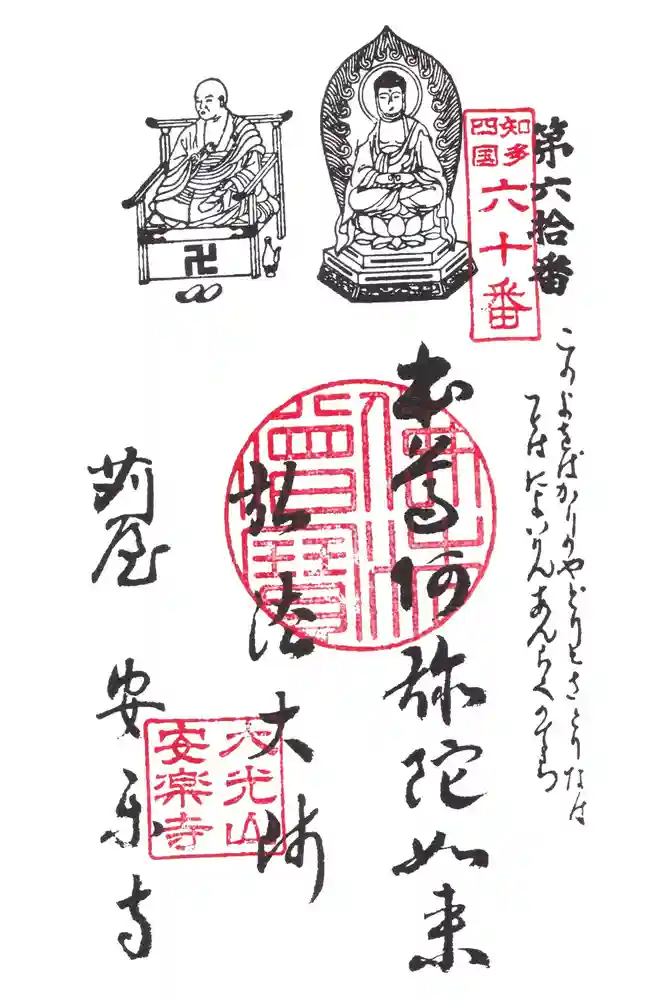 第六拾番
知多
四国
六十番
このよをばかりのやどりとさとりなば
あんらくの
本尊阿弥陀如来
佛法
僧寶
弘法大師
苅屋 安楽寺
大光山
安楽寺
卍